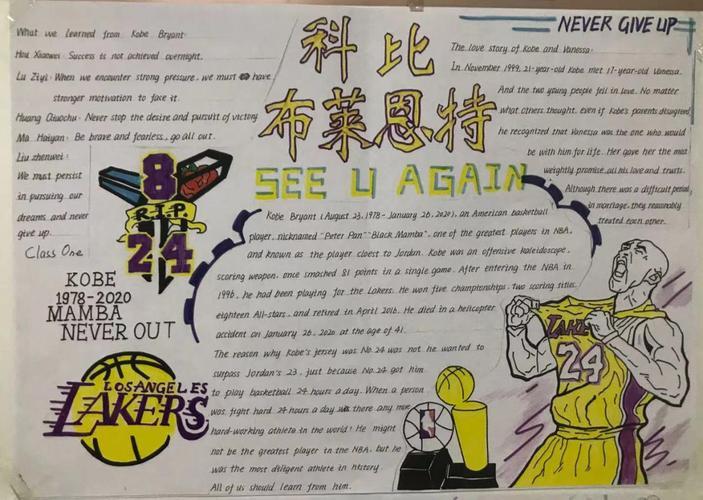 NEVER GIVE UP
科比
布莱恩特
SEE U AGAIN
What we learned from Kobe Bryant:
Hou Xiaowei: Success is not achieved overnight.
Lu Ziyi: When we encounter strong pressure, we must have
stronger motivation to face it.
Huang Qiuochu: Never stop the desire and pursuit of victory
Ma Haiyan: Be brave and fearless, go all out.
Liu zhenwei:
We must persist
in pursuing our
dreams and never
give up.
Class One
8
R.I.P.
24
KOBE
1978-2020
MAMBA
NEVER OUT
LOS ANGELES
LAKERS
The love story of Kobe and Vanessa:
In November 1999, 21-year-old Kobe met 17-year-old Vanessa.
And the two young people fell in love. No matter
what others thought, even if Kobe's parents disagreed
he recognized that Vanessa was the one who would
be with him for life. Her gave her the most
weightly promise, all his love and trusts.
Although there was a difficult period
in marriage, they reasonably
treated each other.
Kobe Bryant (August 23, 1978 - January 26, 2020), an American basketball
player, nicknamed "Peter Pan" "Black Mamba", one of the greatest players in NBA,
and known as the player cloest to Jordan. Kobe was an offensive kaleidoscope,
scoring weapon, once smashed 81 points in a single game. After entering the NBA in
1996, he had been playing for the Lakers. He won five championships, two scoring titles,
eighteen All-stars, and retired in April 2016. He died in a helicopter
accident on January 26, 2020 at the age of 41.
The reason why Kobe's jersey was No.24 was not he wanted to
surpass Jordan's 23, just because No.24 got him
to play basketball 24 hours a day. When a person
was fight hard 24 hours a day was there any more
hard-working athlete in the world! He might
not be the greatest player in the NBA, but he
was the most diligent athlete in history
All of us should learn from him.
LAKE
24